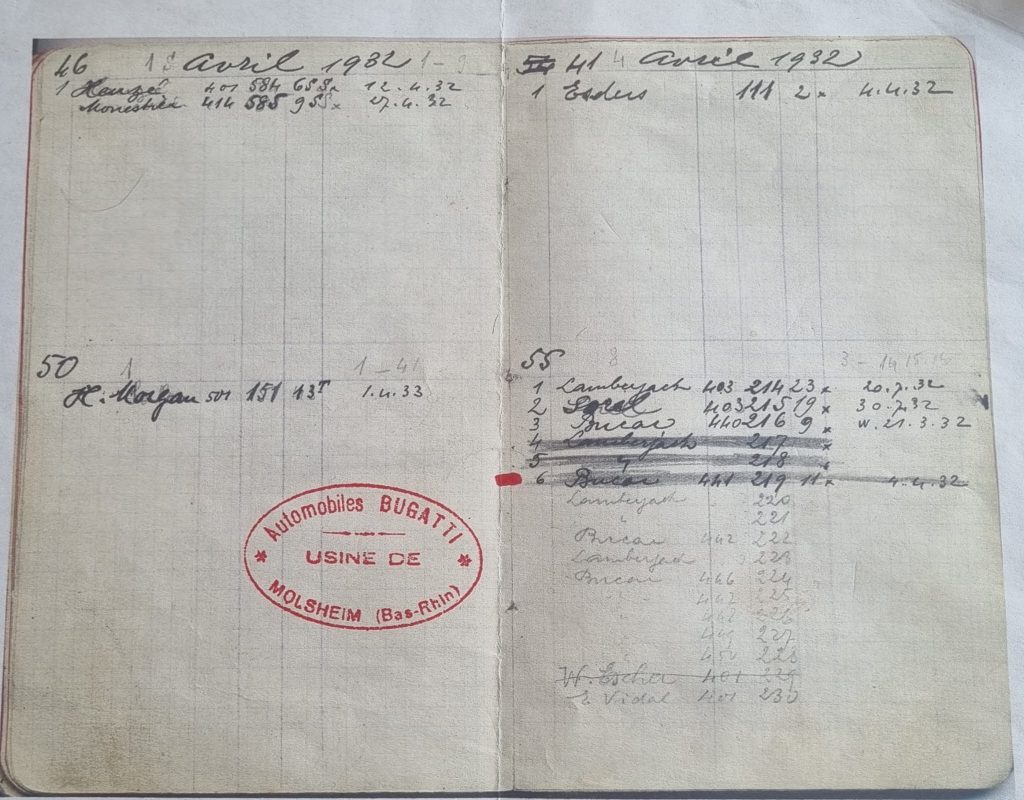 46 Avril 1932
1 401 584 12.4.32
414 585 27.4.32
50 1 1-41
H. Morgan 501 151 13T 1.4.33
Automobiles BUGATTI
USINE DE
MOLSHEIM (Bas-Rhin)
41 4 Avril 1932
1 Esders 111 2 x 4.4.32
55 8 3-14
1 Lamberjack 403 214 23 x 20.7.32
2 403 215 19 x 30.7.32
3 Bucar 440 216 9 x W. 21.3.32
4 Lamberjack 217 x
5 " 218
6 Bucar 441 219 11 x 4.4.32
Lamberjack 220
221
Bucar 442 222
Lamberjack 223
Bucar 446 224
447 225
226
449 227
450 228
W. Escher 401 229
E Vidal 401 230